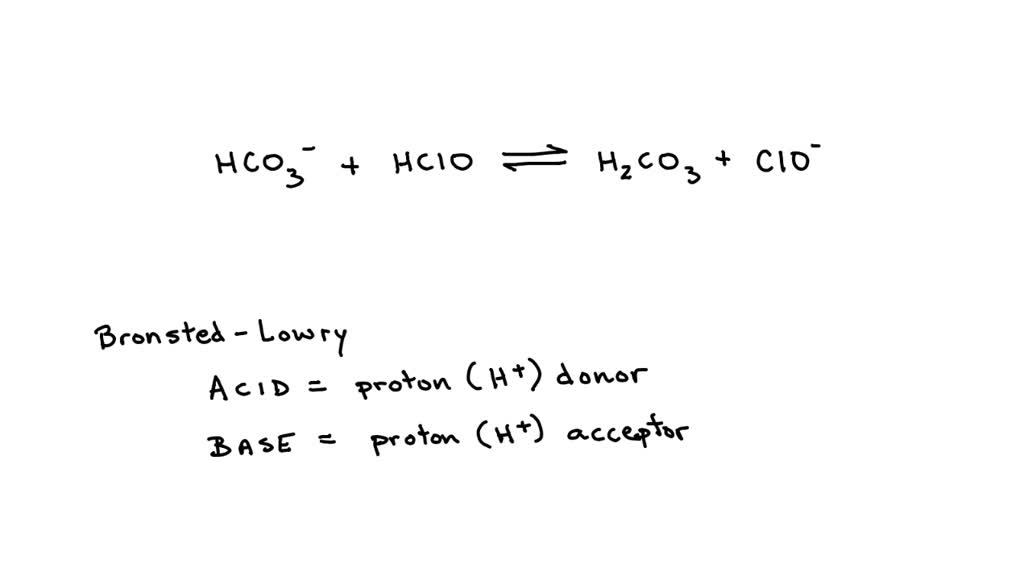 HCO₃⁻ + HClO ⇌ H₂CO₃ + ClO⁻
Bronsted-Lowry
ACID = proton (H⁺) donor
BASE = proton (H⁺) acceptor